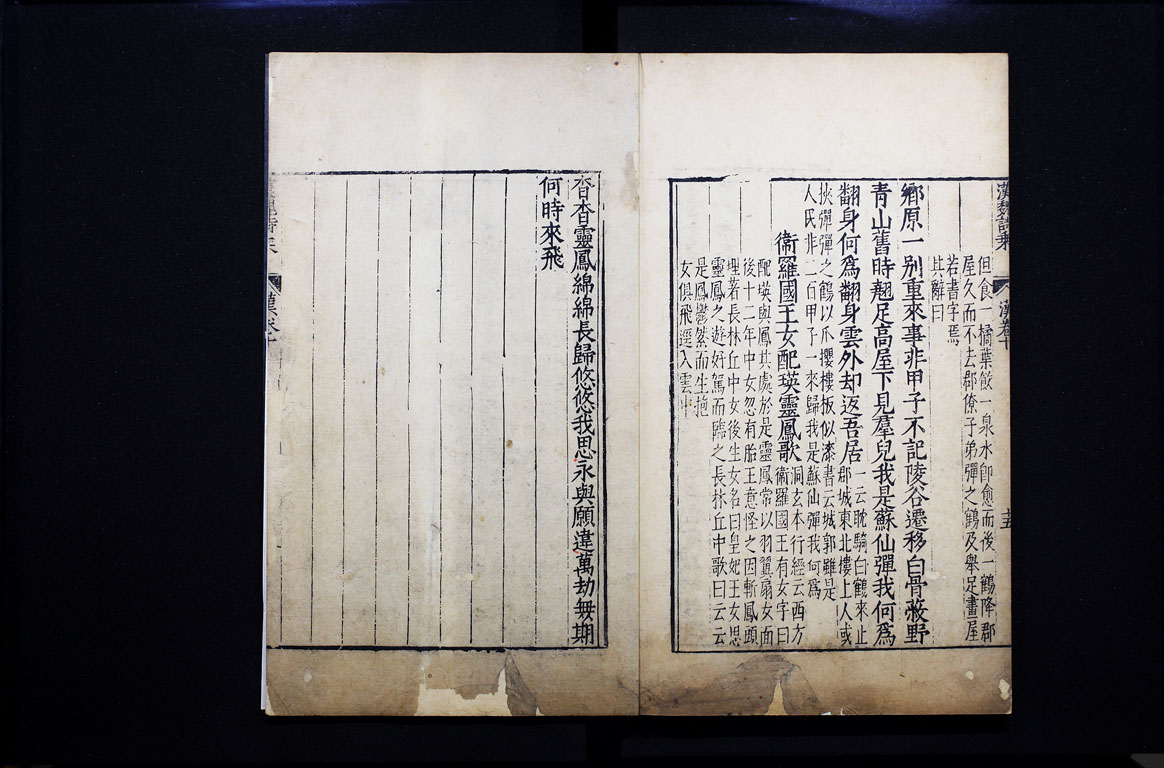 漢魏詩乘
漢卷十
十五
但食一橘葉飲一泉水卽愈而後一鶴降郡
屋久而不去郡僚子弟彈之鶴及舉足畫屋
若書字焉
其辭曰
鄉原一别重來事非甲子不記陵谷遷移白骨蔽野
青山舊時翹足高屋下見羣兒我是蘇仙彈我何爲
翻身何爲翻身雲外却返吾居
一云耽騎白鶴來止
郡城東北樓上人或
挾彈彈之鶴以爪攫樓板似漆書云城郭雖是
人民非三百甲子一來歸我是蘇仙彈我何爲
衞羅國王女配瑛靈鳳歌
洞玄本行經云西方
衞羅國王有女字曰
配瑛與鳳共處於是靈鳳常以羽翼扇女面
後十二年中女忽有胎王意怪之因斬鳳頭
埋著長林丘中女後生女名曰皇妃王女思
靈鳳之遊好駕而臨之長林丘中歌曰云云
是鳳鬱然而生抱
女俱飛逕入雲中
杳杳靈鳳綿綿長歸悠悠我思永與願違萬劫無期
何時來飛
漢卷十